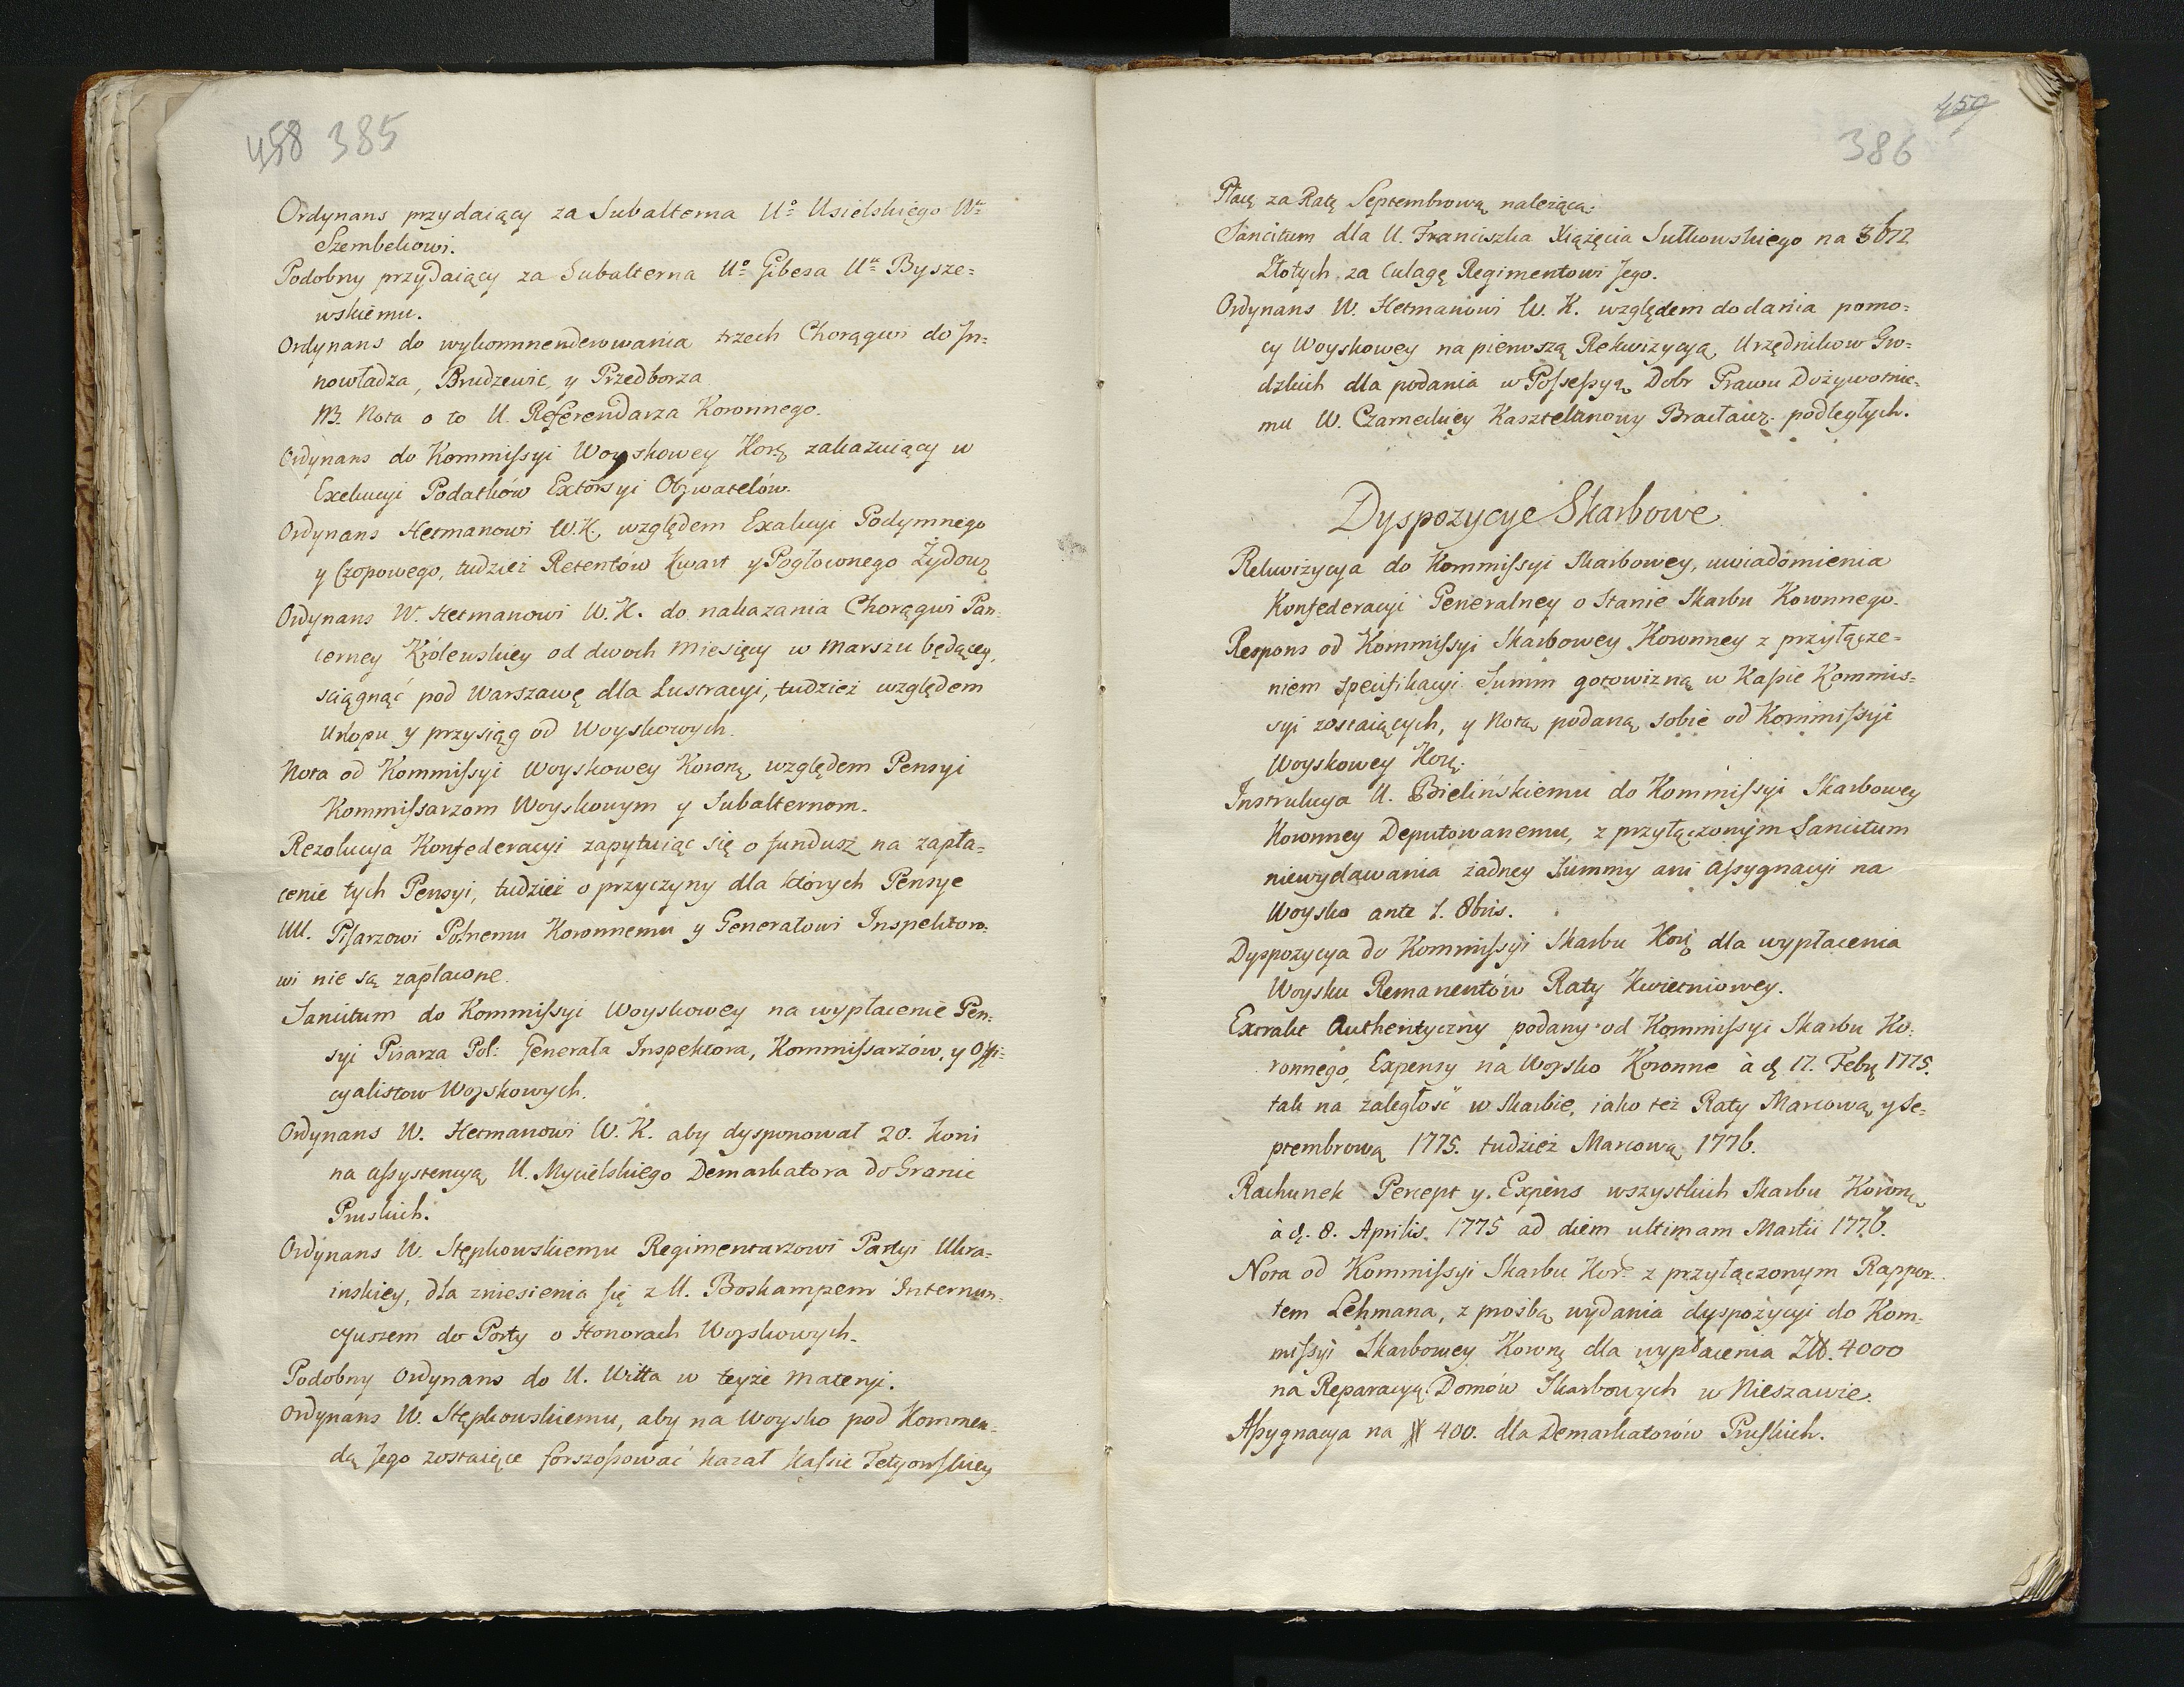 458 385
Ordynans przydaiący za Subalterna Uº Usielskiego Wu
Szembekowi.
Podobny przydaiący za Subalterna Uº Gibesa Uu Bysze=
wskiemu.
Ordynans do wykommenderowania trzech Chorągwi do In=
nowładza, Brudzewic, y Przedborza
NB. Nota o to U. Referendarza Koronnego.
Ordynans do Kommissyi Woyskowey Korę zakazuiący w
Exekucyi Podatków Extorsyi Obywatelów.
Ordynans Hetmanowi W.K. względem Exakcyi Podymnego
y Czopowego, tudzież Retentów Kwart y Pogłownego Żydowę
Ordynans W. Hetmanowi W.K. do nakazania Chorągwi Pan=
cerney Królewskiey od dwoch Miesięcy w marszu będącey,
sciągnąć pod Warszawę dla Lustracyi, tudzież względem
Urlopu y przysiąg od Woyskowych.
Nota od Kommissyi Woyskowey Koronę względem Pensyi
Kommissarzom Woyskowym y Subalternom.
Rezolucya Konfederacyi zapytuiąc się o fundusz na zapła=
cenie tych Pensyi, tudzież o przyczyny dla których Pensye
UU. Pisarzowi Polnemu Koronnemu y Generałowi Inspektoro=
wi nie są zapłacone.
Sancitum do Kommissyi Woyskowey na wypłacenie Pen=
syi Pisarza Pol: Generała Inspektora, Kommissarzów, y Offi=
cyalistow Woyskowych.
Ordynans W. Hetmanowi W.K. aby dysponował 20. koni
na assystencyą U. Mycielskiego Demarkatora do Granic
Pruskich.
Ordynans W. Stępkowskiemu Regimentarzowi Partyi Ukra=
inskiey, dla zniesienia się z U. Boskampem Internun=
cyuszem do Porty o Honorach Woyskowych.
Podobny Ordynans do U. Witta w teyże materyi.
Ordynans W. Stępkowskiemu, aby na Woysko pod Kommen=
dą Jego zostaiące forszosować kazał Kassie Tetyowskiey
459
386
Płacę za Ratę Septembrową należącą.
Sancitum dla U. Franciszka Xiążęcia Sułkowskiego na 3672
Złotych za Culagę Regimentowi Jego.
Ordynans W. Hetmanowi W. K. względem dodania pomo=
cy Woyskowey na pierwszą Rekwizycyą Urzędnikow Gro=
dzkich dla podania w Possessyą Dobr Prawu Dożywotnie=
mu W. Czarneckiey Kasztelanowy Bracławę: podległych.
Dyspozycye Skarbowe
Rekwizycya do Kommissyi Skarbowey, uwiadomienia
Konfederacyi Generalney o Stanie Skarbu Koronnego.
Respons od Kommissyi Skarbowey Koronney z przyłącze=
niem specifikacyi Summ gotowizną w Kassie Kommis=
syi zostaiących, y Notą podaną sobie od Kommissyi
Woyskowey Korę.
Instrukcya U. Bielińskiemu do Kommissyi Skarbowey
Koronney Deputowanemu, z przyłączonym Sancitum
niewydawania żadney Summy ani assygnacyi na
Woysko ante 1. 8bris.
Dyspozycya do Kommissyi Skarbu Korę dla wypłacenia
Woysku Remanentów Raty Kwietniowey.
Extrakt Authentyczny podany od Kommissyi Skarbu Ko=
ronnego, Expensy na Woysko Koronne à dę 17. Febrę 1775.
tak na zaległość w Skarbie, iako też Raty Marcową y Se=
ptembrową 1775. tudzież Marcową 1776.
Rachunek Percept y Expens wszystkich Skarbu Koronę
à dę. 8. Aprilis. 1775 ad diem ultimam Martii 1776.
Nota od Kommissyi Skarbu Kor: z przyłączonym Rappor=
tem Lehmana, z prośbą wydania dyspozycyi do Kom=
missyi Skarbowey Koronę dla wypłacenia Zł. 4000
na Reparacyą Domów Skarbowych w Nieszawie.
Assygnacya na # 400. dla Demarkatorów Pruskich.